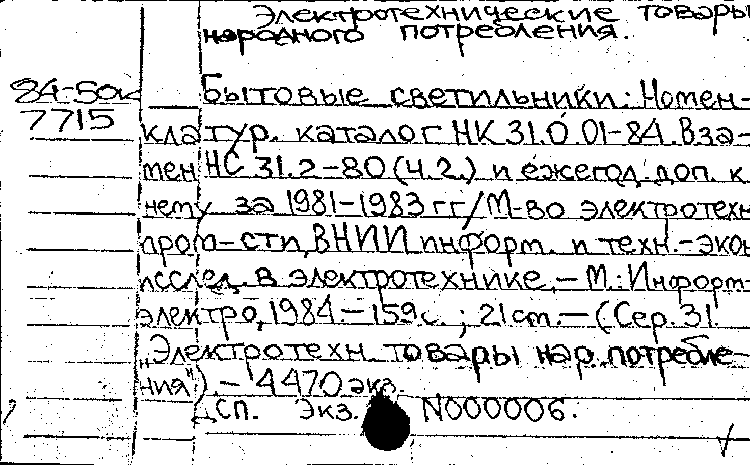 Электротехнические товары
народного потребления.
84-50к
7715
Бытовые светильники: Номен-
клатур. каталог НК 31.0.01-84. Вза-
мен НС 31.2-80 (ч.2.) и ежегод. доп. к
нему за 1981-1983 гг/М-во электротехн
пром-сти, ВНИИ информ. и техн.-экон
исслед. в электротехнике.-М.: Информ-
электро, 1984.-159с.; 21 cm.-(Сер. 31.
„Электротехн. товары нар. потребле-
ния").- 4470 экз.
ДСП. Экз. N000006.